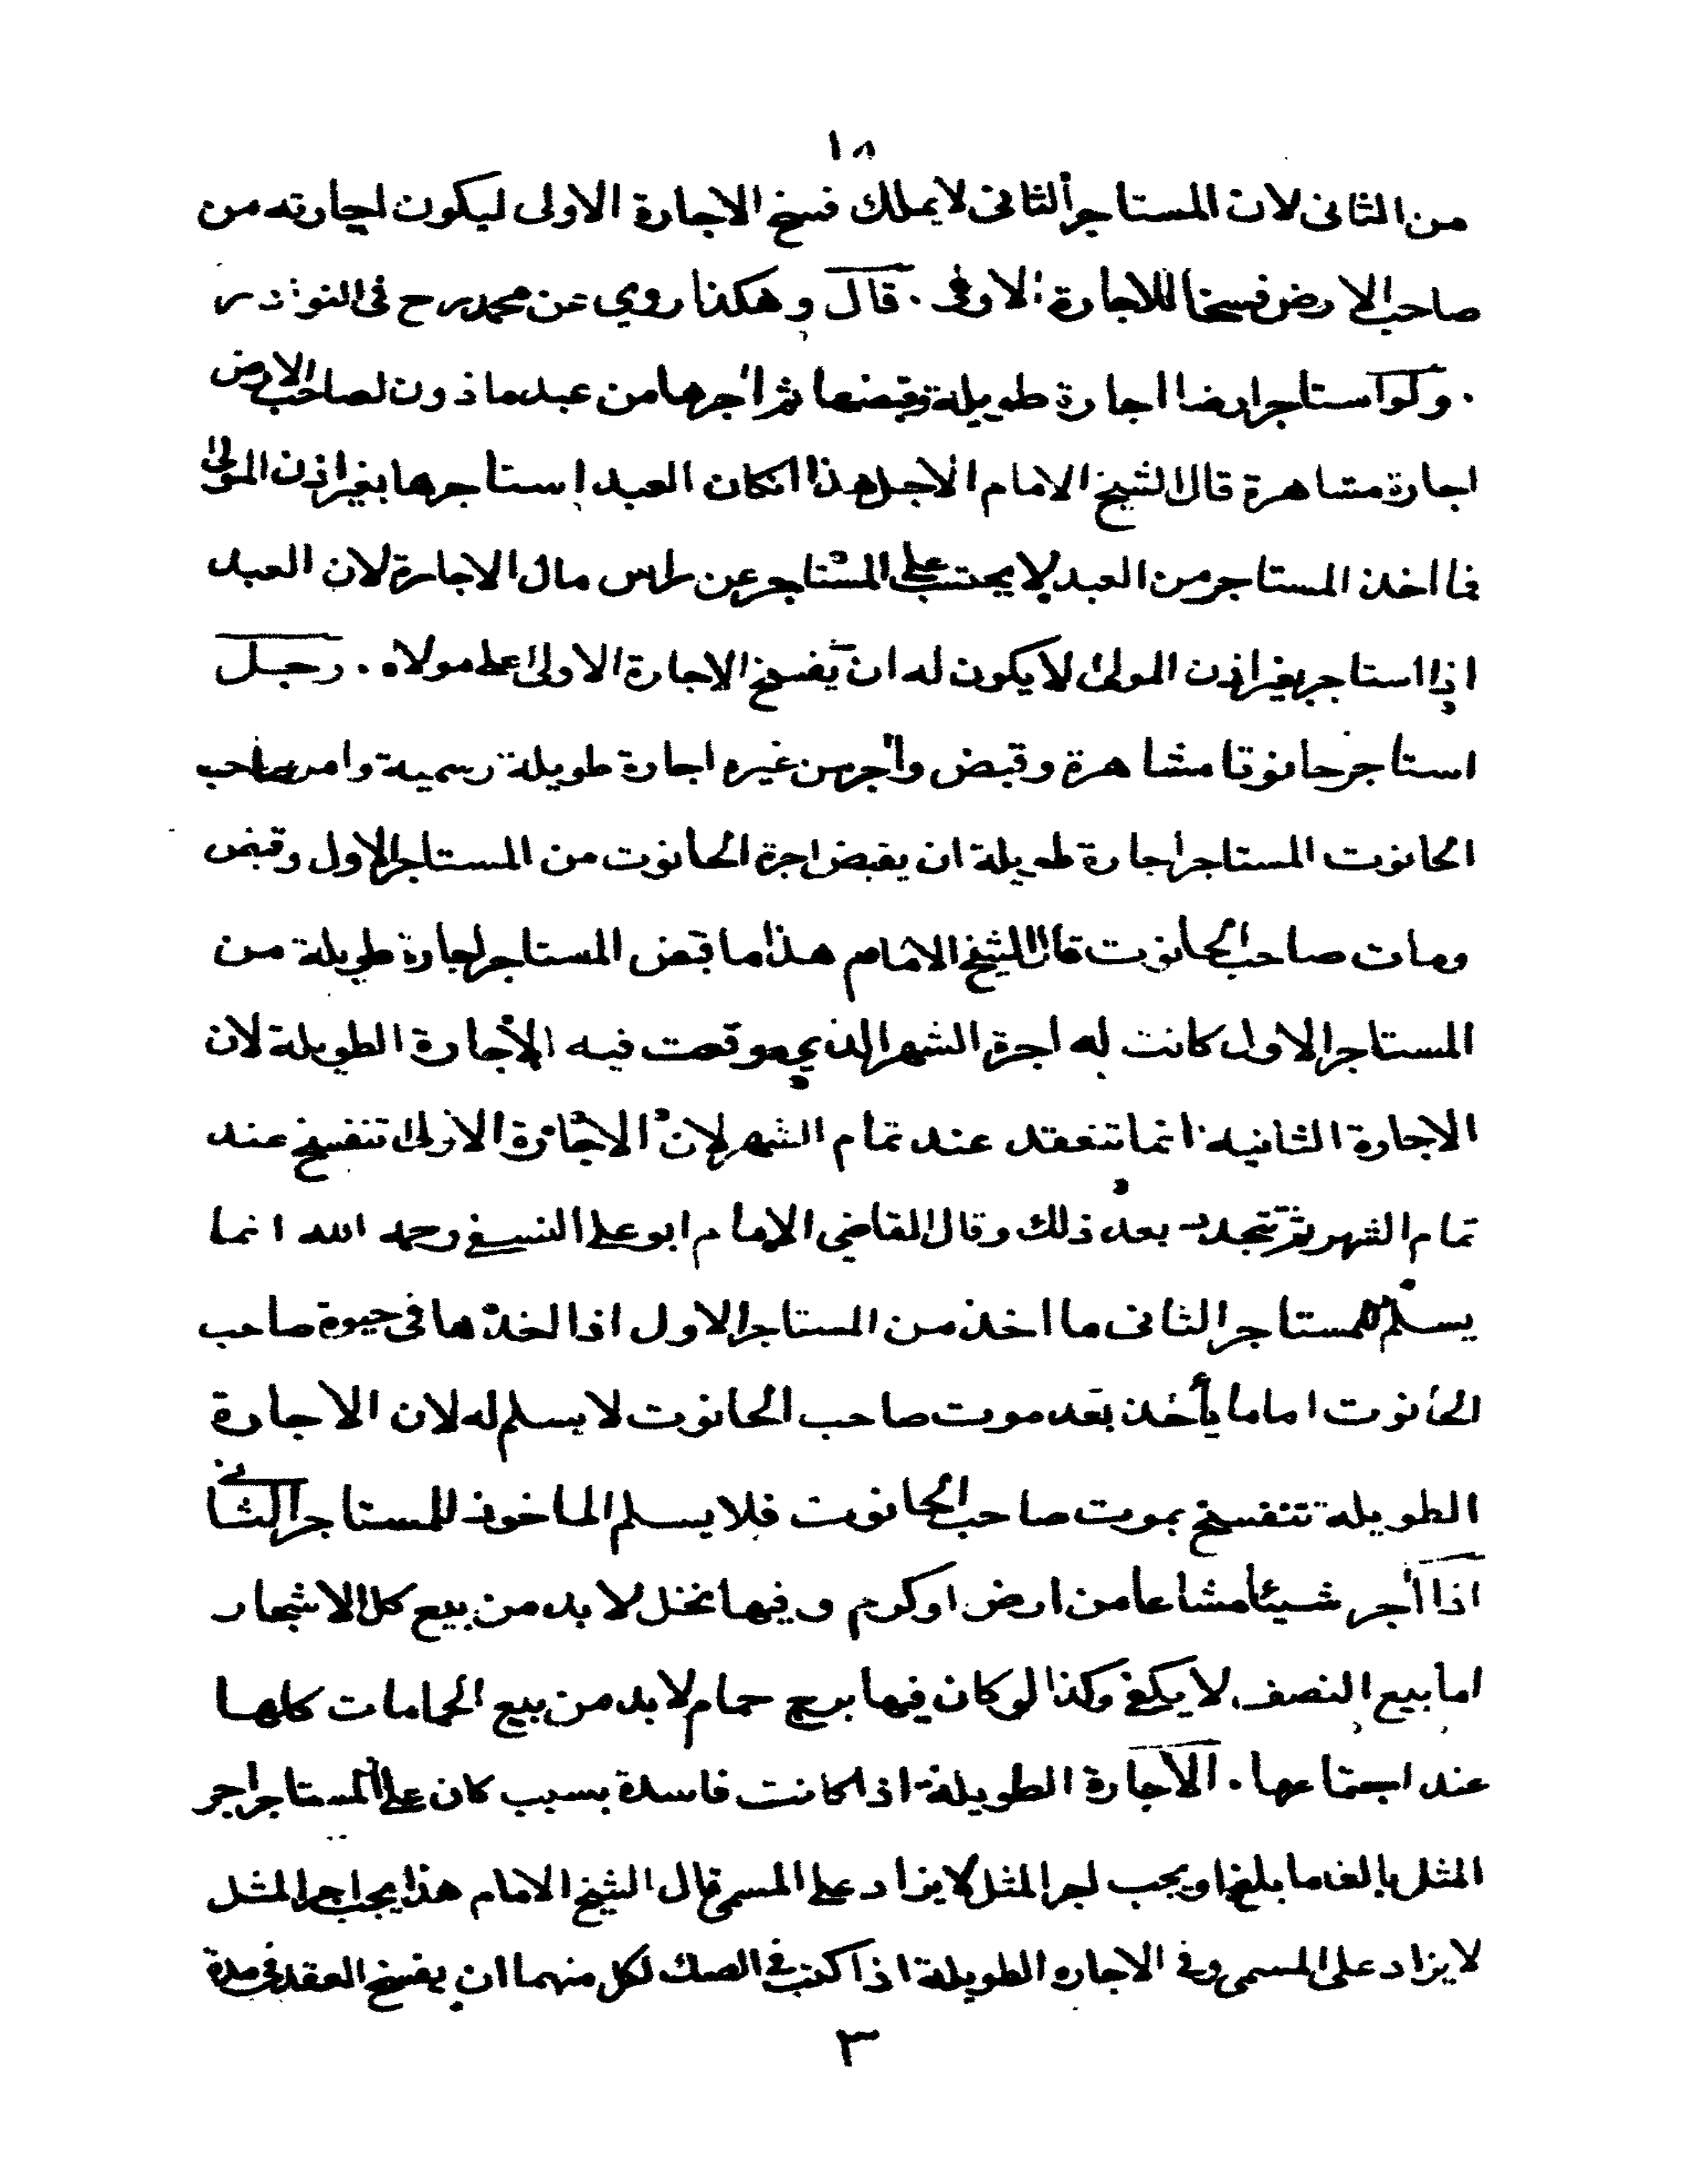 ١٨
من الثانى لان المستاجر الثانى لايملك فسخ الاجارة الاولى ليكون اجارته من
صاحب الارض فسخا للاجارة الاولى . قال وهكذا روي عن محمد رح فى النوادر
. ولو استاجر ارضا اجارة طويلة وقبضها ثم اجرها من عبد ماذون لصاحب الارض
اجارة مشاهرة قال الشيخ الامام الاجل هذا انكان العبد استاجرها بغير اذن المولى
فما اخذ المستاجر من العبد لا يحتسب على المستاجر عن راس مال الاجارة لان العبد
اذا استاجر بغير اذن المولى لا يكون له ان يفسخ الاجارة الاولى على مولاه . رجل
استاجر حانوتا مشاهرة وقبض وأجر من غيره اجارة طويلة رسمية وامر صاحب
الحانوت المستاجر اجارة طويلة ان يقبض اجرة الحانوت من المستاجر الاول وقبض
ومات صاحب الحانوت قال الشيخ الامام هذا ما قبض المستاجر اجارة طويلة من
المستاجر الاول كانت له اجرة الشهر الذي وقعت فيه الاجارة الطويلة لان
الاجارة الثانيه انما تنعقد عند تمام الشهر لان الاجارة الاولى تنفسخ عند
تمام الشهر ثم تتجدد بعد ذلك وقال القاضي الامام ابو على النسفى رحمه الله انما
يسلم للمستاجر الثانى ما اخذ من المستاجر الاول اذا اخذها فى حيوة صاحب
الحانوت اما ما يأخذ بعد موت صاحب الحانوت لا يسلم له لان الاجارة
الطويلة تنفسخ بموت صاحب الحانوت فلا يسلم الماخوذ للمستاجر الثانى
اذا أجر شيئا مشاعا من ارض او كرم وفيها نخل لا بد من بيع كل الاشجار
اما بيع النصف لا يكفى وكذا لو كان فيها برج حمام لا بد من بيع الحمامات كلها
عند اجتماعها . الاجارة الطويلة اذا كانت فاسدة بسبب كان على المستاجر اجر
المثل بالغا ما بلغ او يجب اجر المثل لا يزاد على المسمى قال الشيخ الامام هذا يجب اجر المثل
لا يزاد على المسمى وفى الاجاره الطويلة اذا كتب فى الصك لكل منهما ان يفسخ العقد فى مدة
٣